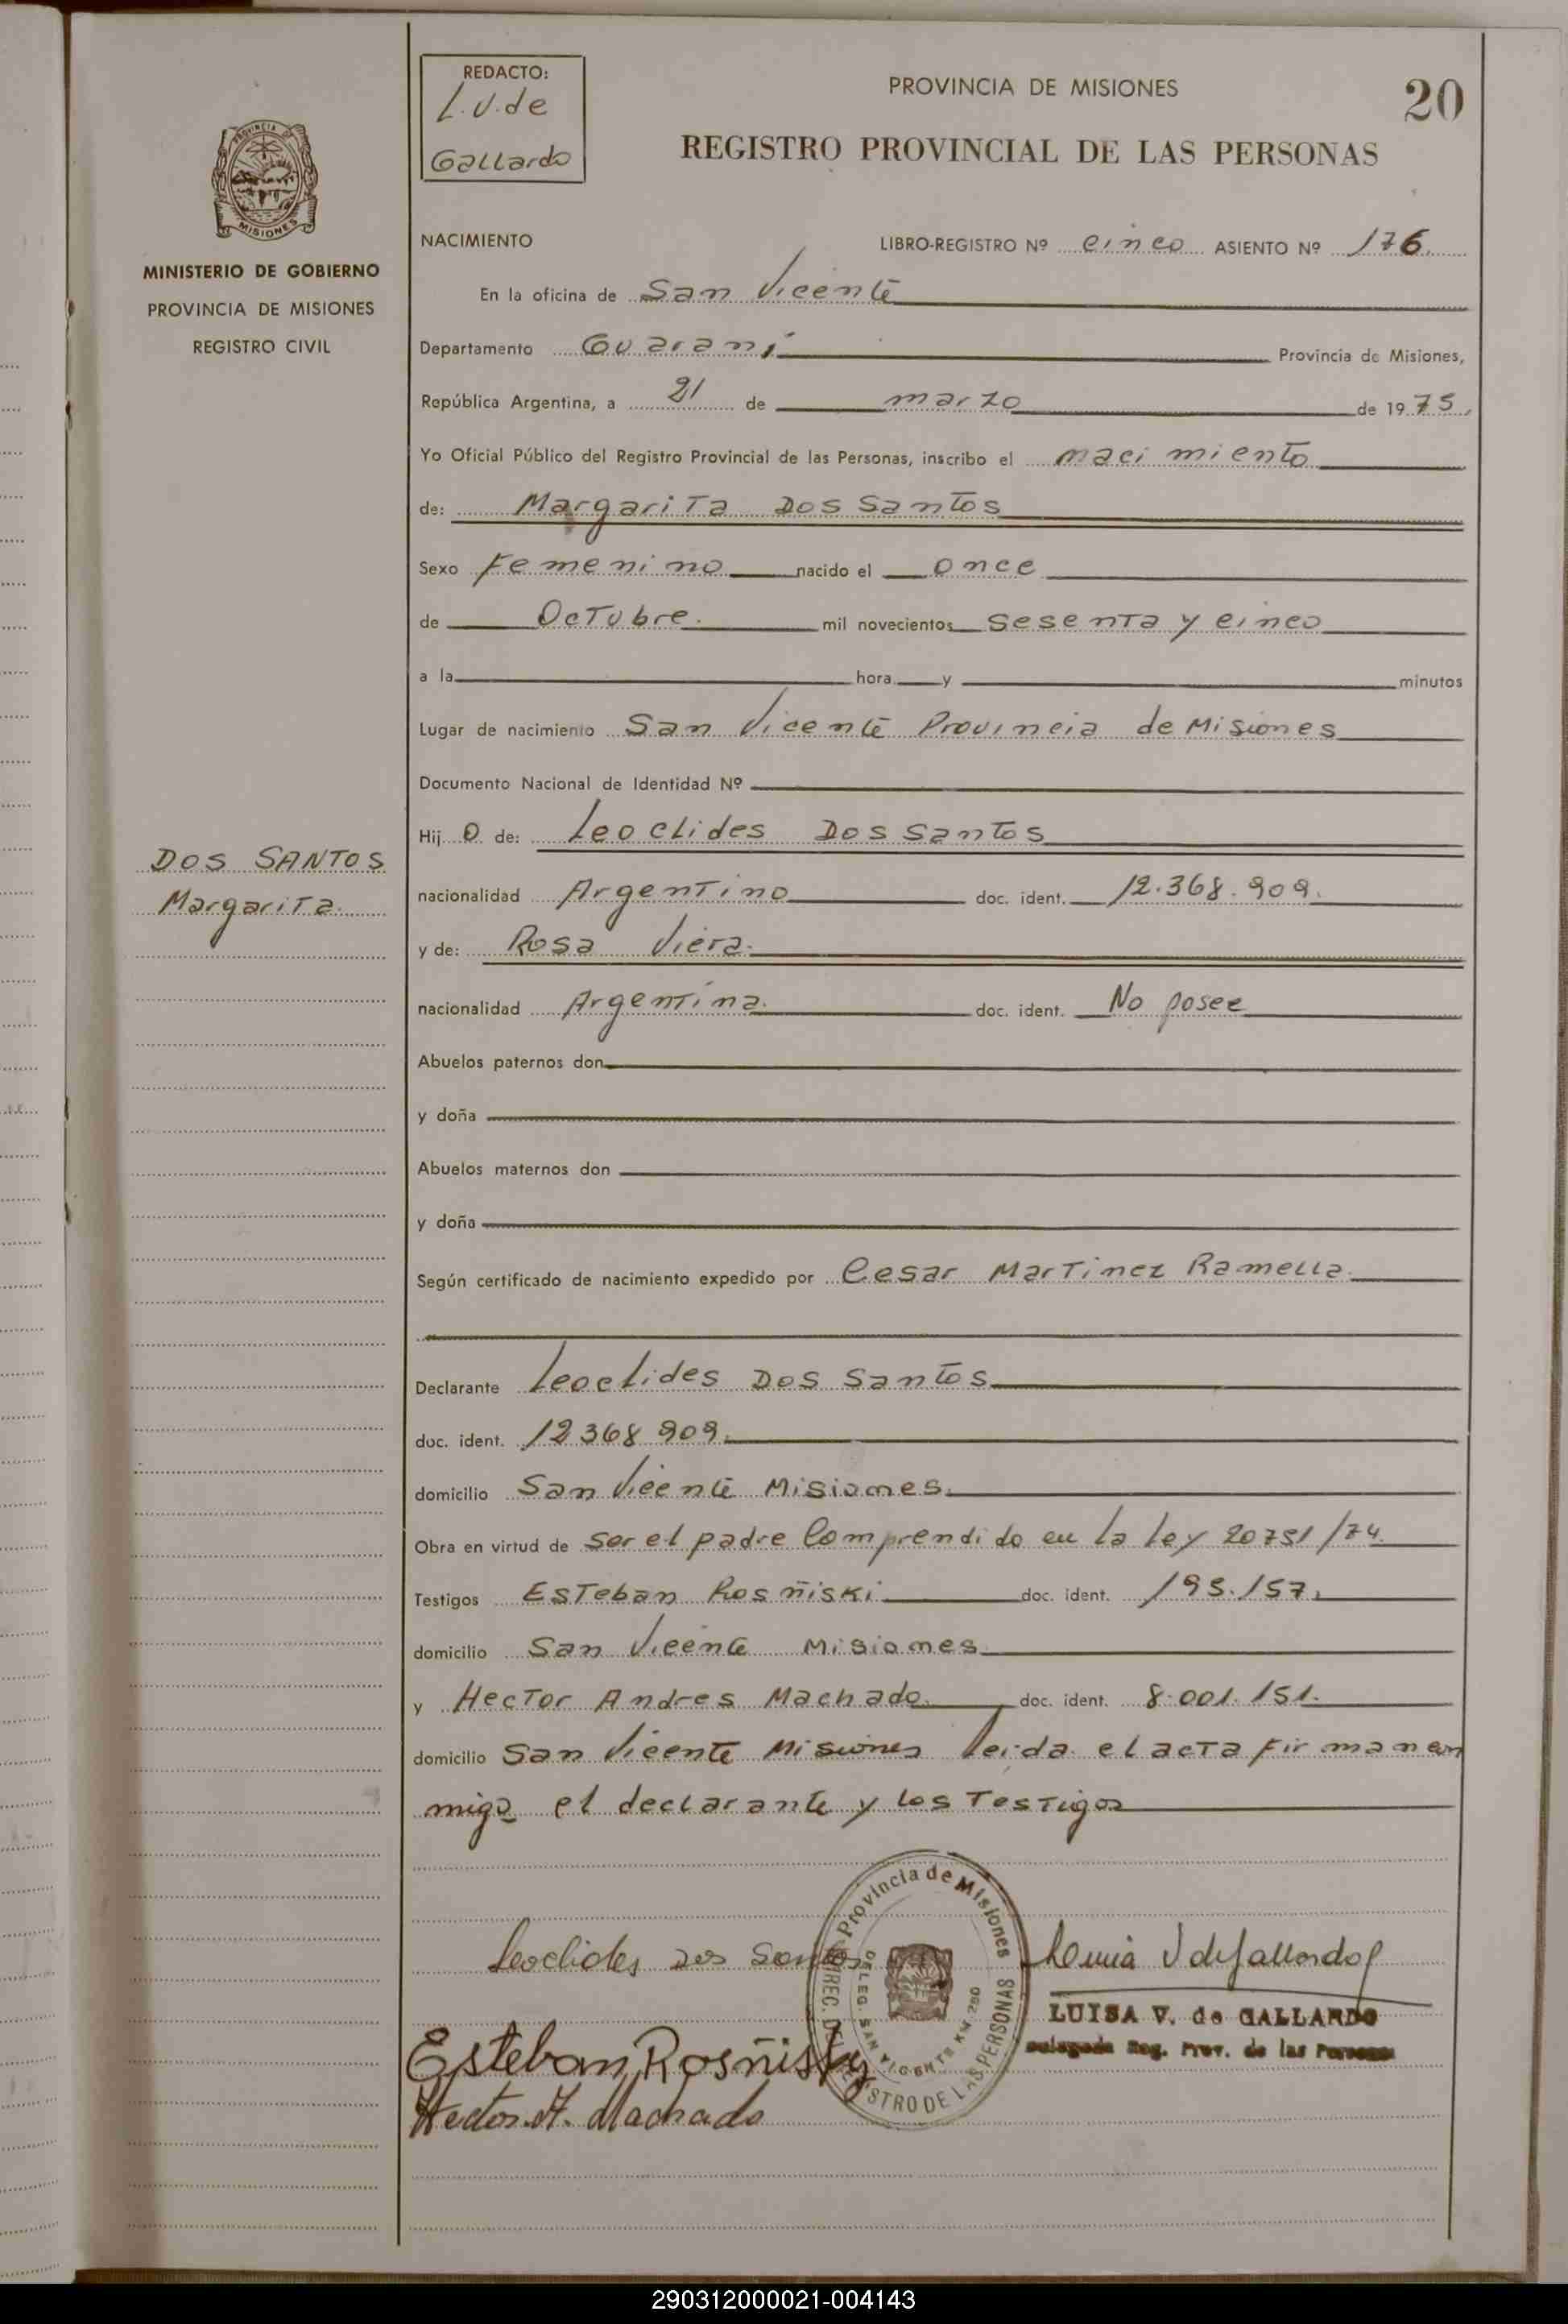 REDACTO:
L.V. de
Gallardo
PROVINCIA DE MISIONES
20
REGISTRO PROVINCIAL DE LAS PERSONAS
PROVINCIA DE
MISIONES
MINISTERIO DE GOBIERNO
PROVINCIA DE MISIONES
REGISTRO CIVIL
NACIMIENTO LIBRO-REGISTRO Nº cinco ASIENTO Nº 176.
En la oficina de San Vicente
Departamento Guaraní Provincia de Misiones,
República Argentina, a 21 de marzo de 1975,
Yo Oficial Público del Registro Provincial de las Personas, inscribo el nacimiento
de: Margarita Dos Santos
Sexo Femenino nacido el once
de Octubre. mil novecientos sesenta y cinco
a la hora y minutos
Lugar de nacimiento San Vicente Provincia de Misiones
Documento Nacional de Identidad Nº
Hij o de: Leoclides Dos Santos
DOS SANTOS
Margarita.
nacionalidad Argentino doc. ident. 12.368.909.
y de: Rosa Viera.
nacionalidad Argentina. doc. ident. No posee
Abuelos paternos don
y doña
Abuelos maternos don
y doña
Según certificado de nacimiento expedido por Cesar Martinez Ramella.
Declarante Leoclides Dos Santos
doc. ident. 12368909.
domicilio San Vicente Misiones.
Obra en virtud de ser el padre Comprendido en la Ley 20751/74.
Testigos Esteban Rosñiski doc. ident. 195.157.
domicilio San Vicente Misiones
y Hector Andres Machado. doc. ident. 8.001.151.
domicilio San Vicente Misiones Leida el acta firman con
migo el declarante y los Testigos
Provincia de Misiones
DELEG. SAN VICENTE KM. 250
DIREC. DEL REGISTRO DE LAS PERSONAS
Leoclides Dos Santos
Luisa V de Gallardo
LUISA V. de GALLARDO
Delegada Reg. Prov. de las Personas
Esteban Rosñisky
Hector A. Machado
290312000021-004143